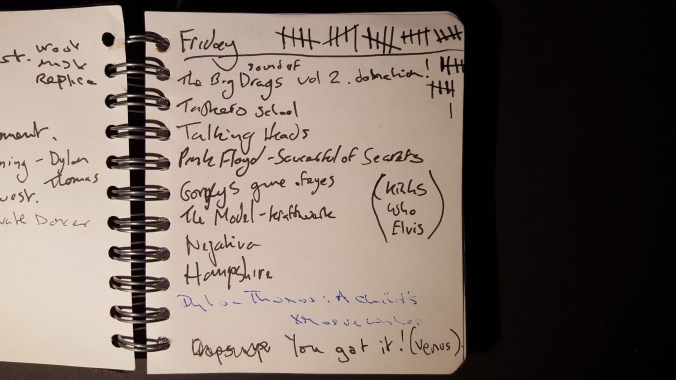 st. work
mask
Replica
ment.
ning - Dylan
Thomas
west.
vate Dancer
Friday
sound of
The Big Drags vol 2. donation!
school
Talking Heads
Pink Floyd - Saucerful of Secrets
Gorkys
The Model - Kraftwerk
(Kinks
Who
Elvis)
Negativa
Hampshire
Dylan Thomas: A Child's
You got it! (Venus)